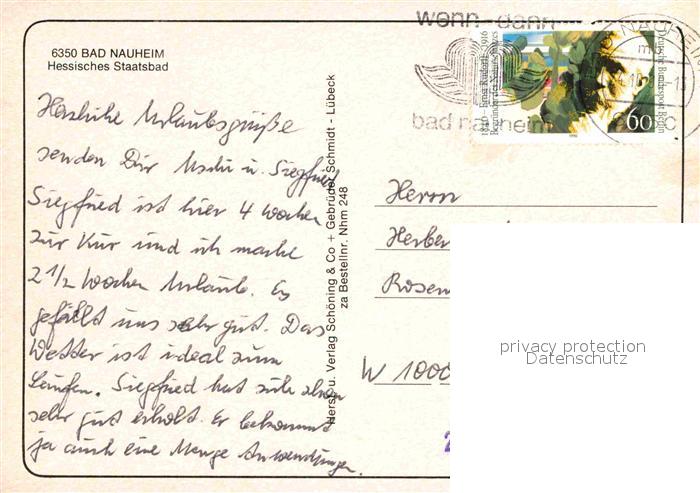 6350 BAD NAUHEIM
Hessisches Staatsbad
wenn - dann
bad nauheim
1840 - Ernst Rudorff - 1916
Begründer des Naturschutzes
Deutsche Bundespost Berlin
60
Herzliche Urlaubsgrüße
senden Dir Uschi u. Siegfried
Siegfried ist hier 4 Wochen
zur Kur und ich mache
2 1/2 Wochen Urlaub. Es
gefällt uns sehr gut. Das
Wetter ist ideal zum
Laufen. Siegfried hat sich schon
sehr gut erholt. Er bekommt
ja auch eine Menge Anwendungen.
Herst. u. Verlag Schöning & Co + Gebrüder Schmidt - Lübeck
za Bestellnr. Nhm 248
Herrn
Herber
Rosen
W 1000
privacy protection
Datenschutz